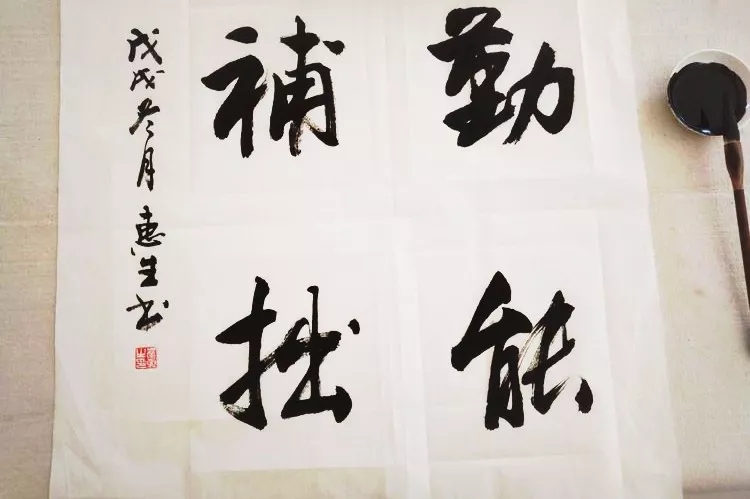 勤能
補拙
戊戌冬月惠生书